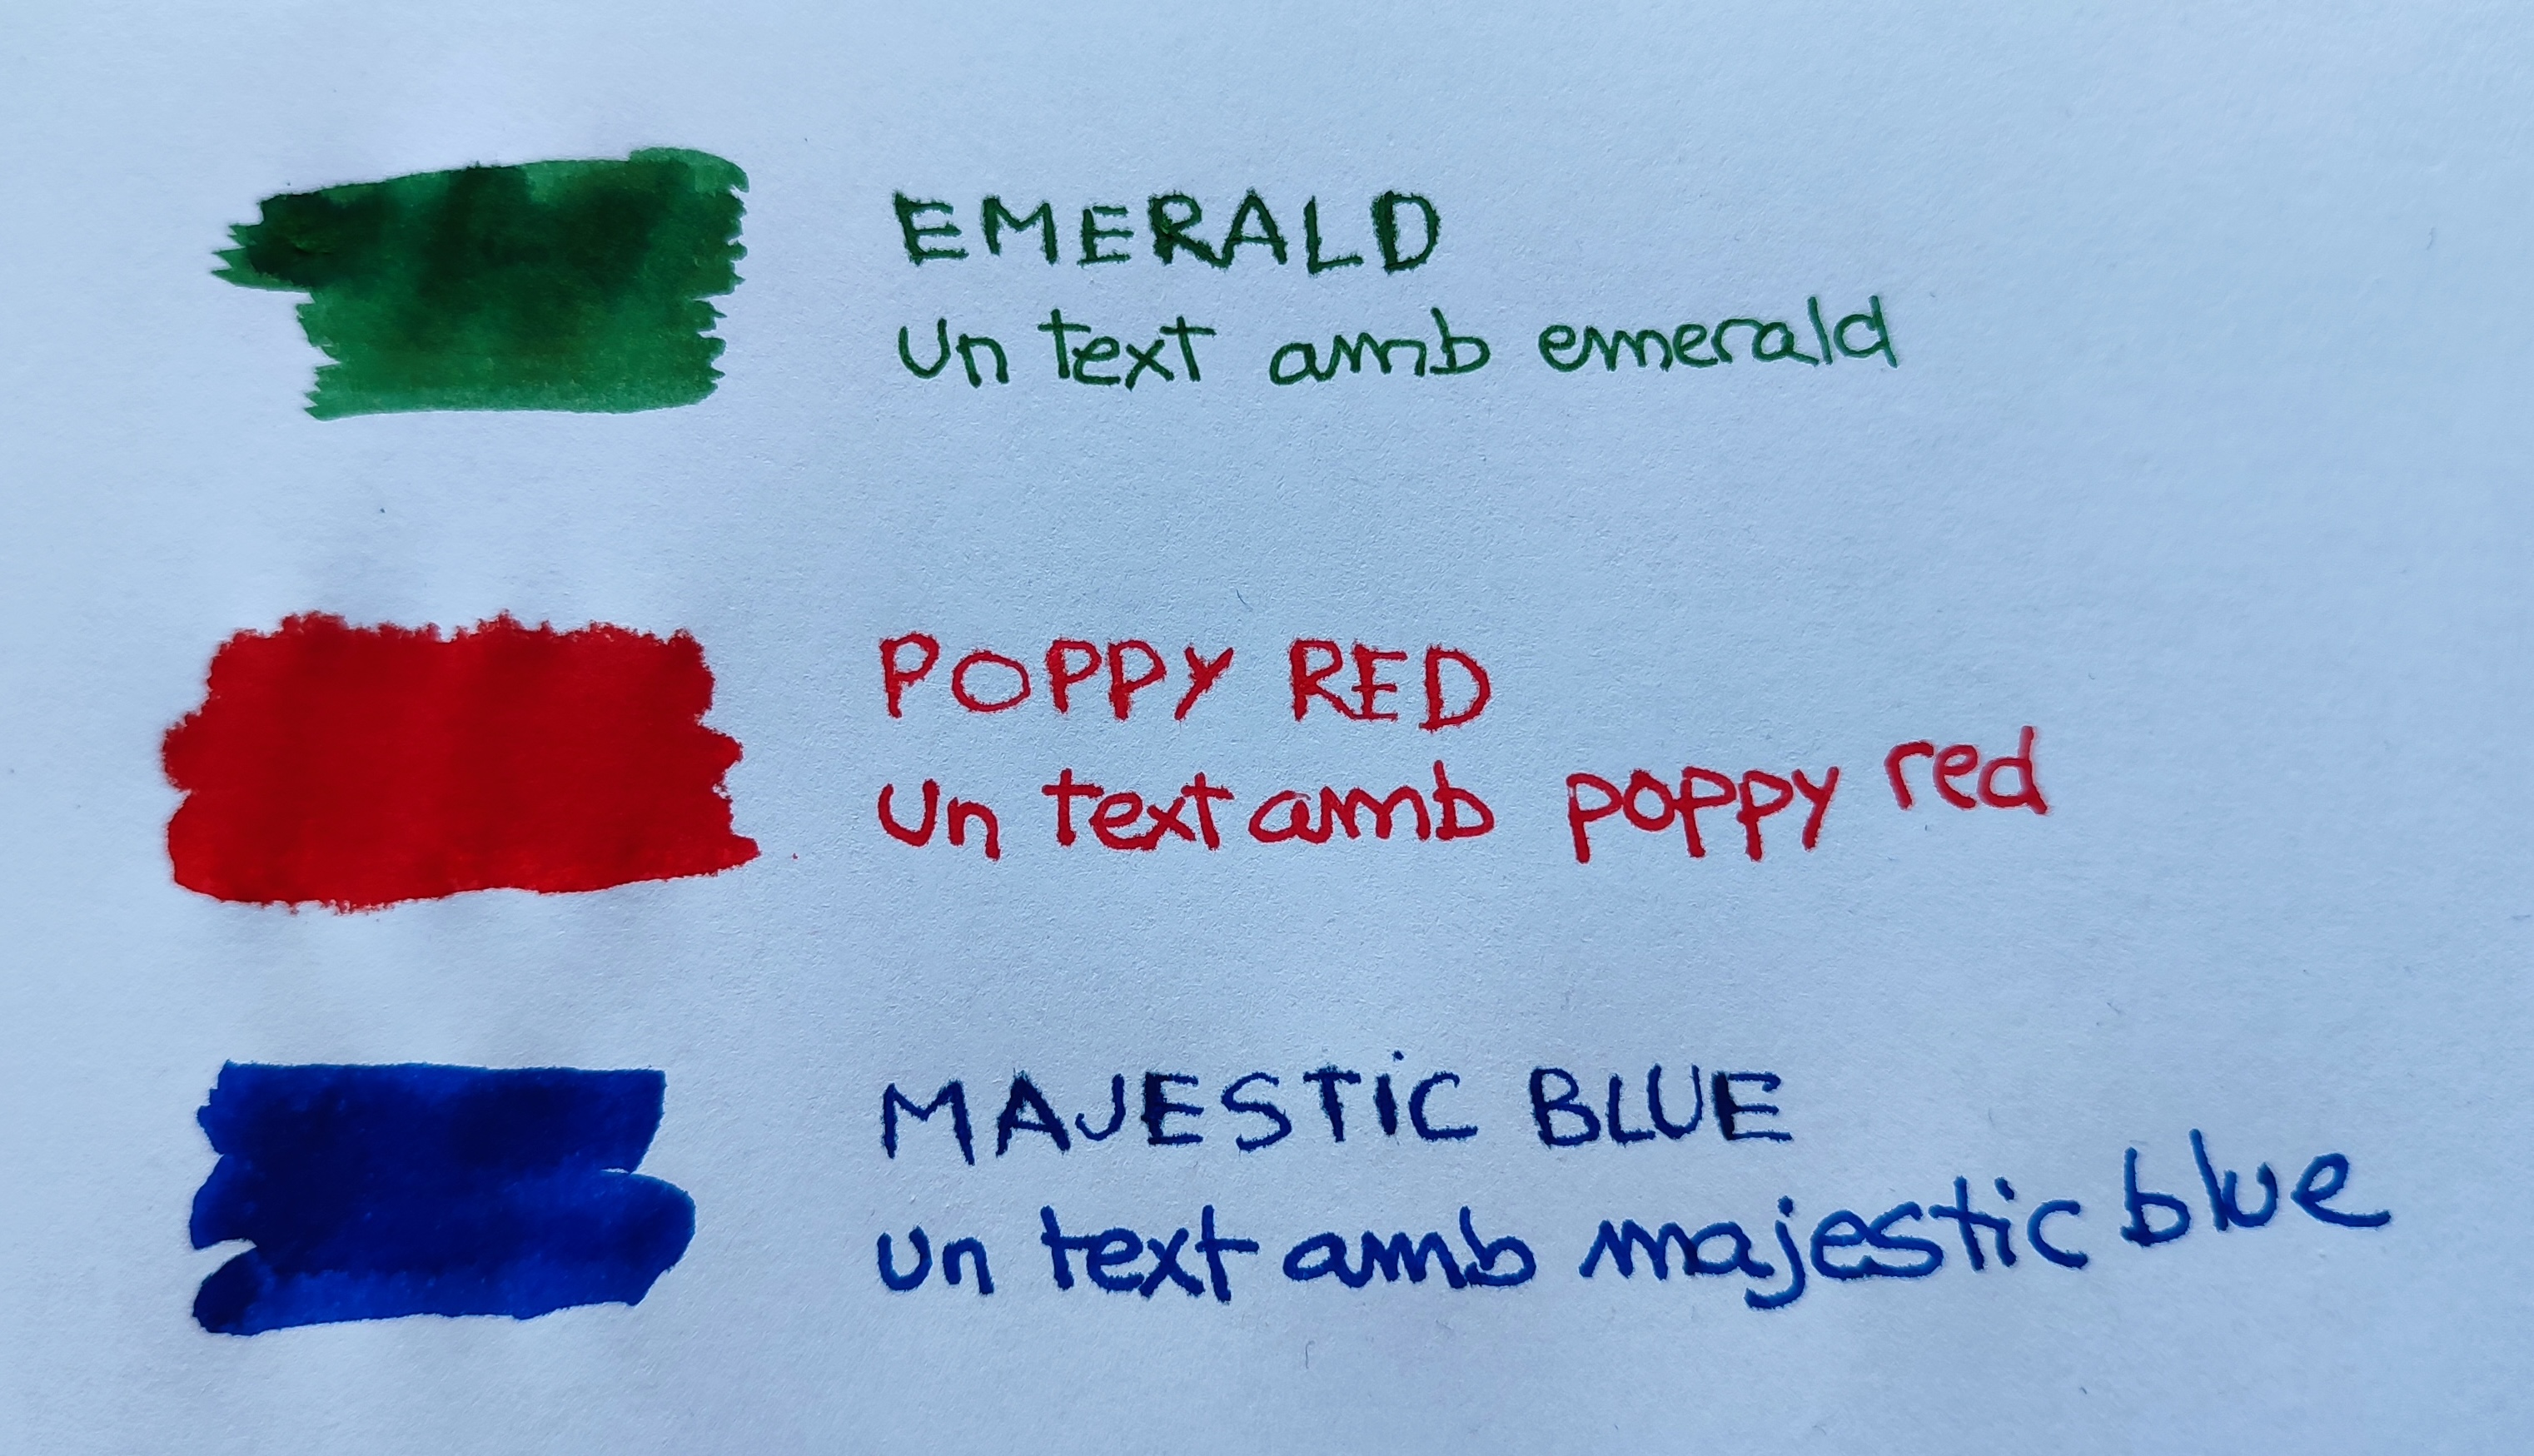 EMERALD
un text amb emerald
POPPY RED
un text amb poppy red
MAJESTiC BLUE
un text amb majestic blue